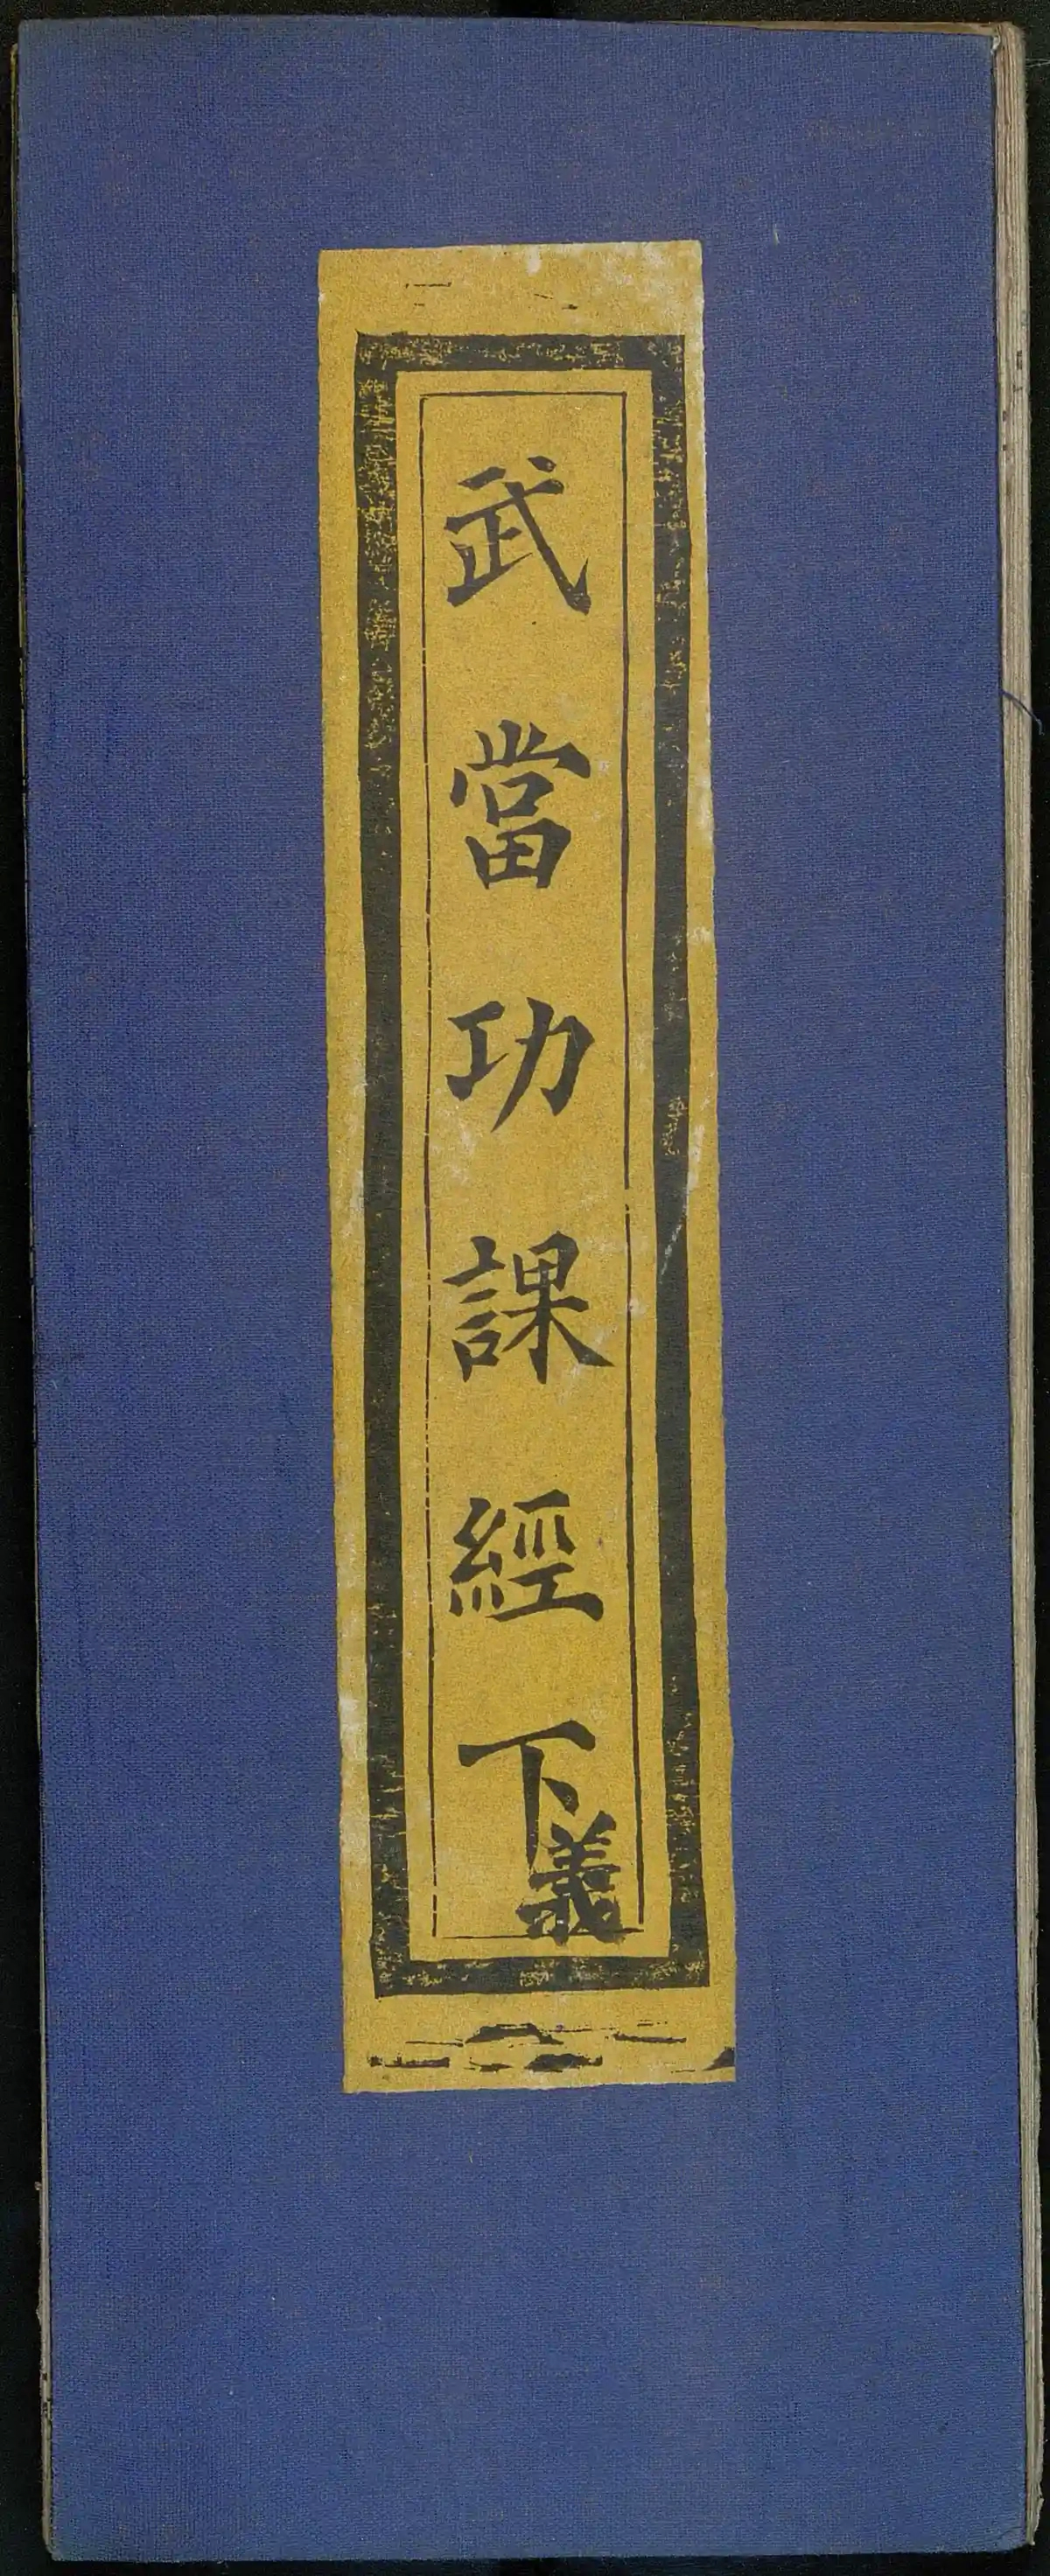 武當功課經下
義